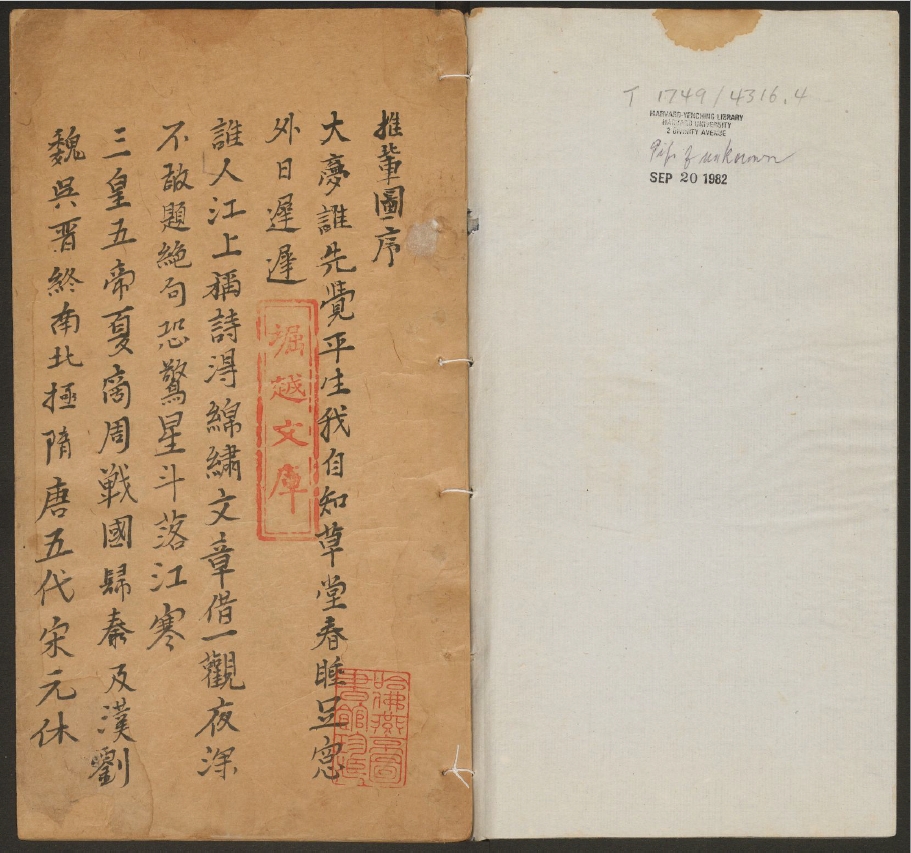 推輩圖序
大夢誰先覺平生我自知草堂春睡足窓
外日遲遲
誰人江上稱詩淂綿繡文章借一觀夜深
不敢題絶句恐驚星斗落江寒
三皇五帝夏商周戰國歸秦及漢劉
魏吳晋終南北極隋唐五代宋元休
堀越文庫
哈佛燕京圖書館珍藏
T 1749/4316.4
HARVARD-YENCHING LIBRARY
HARVARD UNIVERSITY
2 DIVINITY AVENUE
Gift of unknown
SEP 20 1982